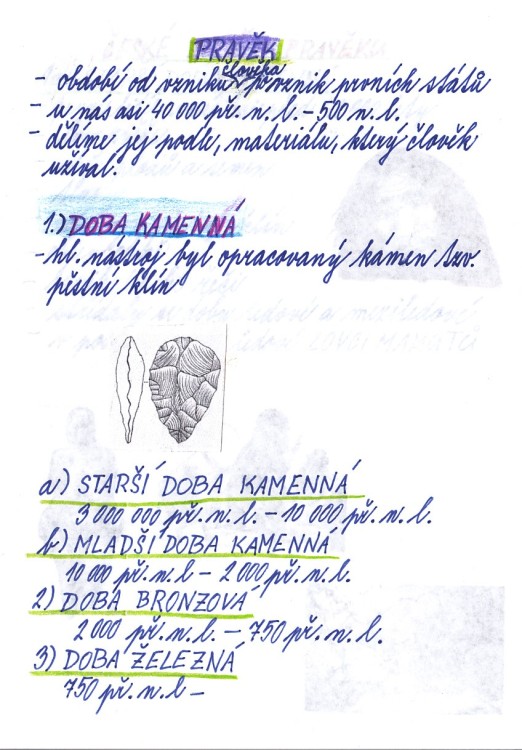 PRAVĚK
- období od vzniku člověka po vznik prvních států
- u nás asi 40 000 př. n. l. - 500 n. l.
- dělíme jej podle, materiálu, který člověk
užíval.
1.) DOBA KAMENNÁ
- hl. nástroj byl opracovaný kámen tzv.
pěstní klín
a) STARŠÍ DOBA KAMENNÁ
3 000 000 př. n. l. - 10 000 př. n. l.
b) MLADŠÍ DOBA KAMENNÁ
10 000 př. n. l - 2 000 př. n. l.
2) DOBA BRONZOVÁ
2 000 př. n. l. - 750 př. n. l.
3) DOBA ŽELEZNÁ
750 př. n. l -